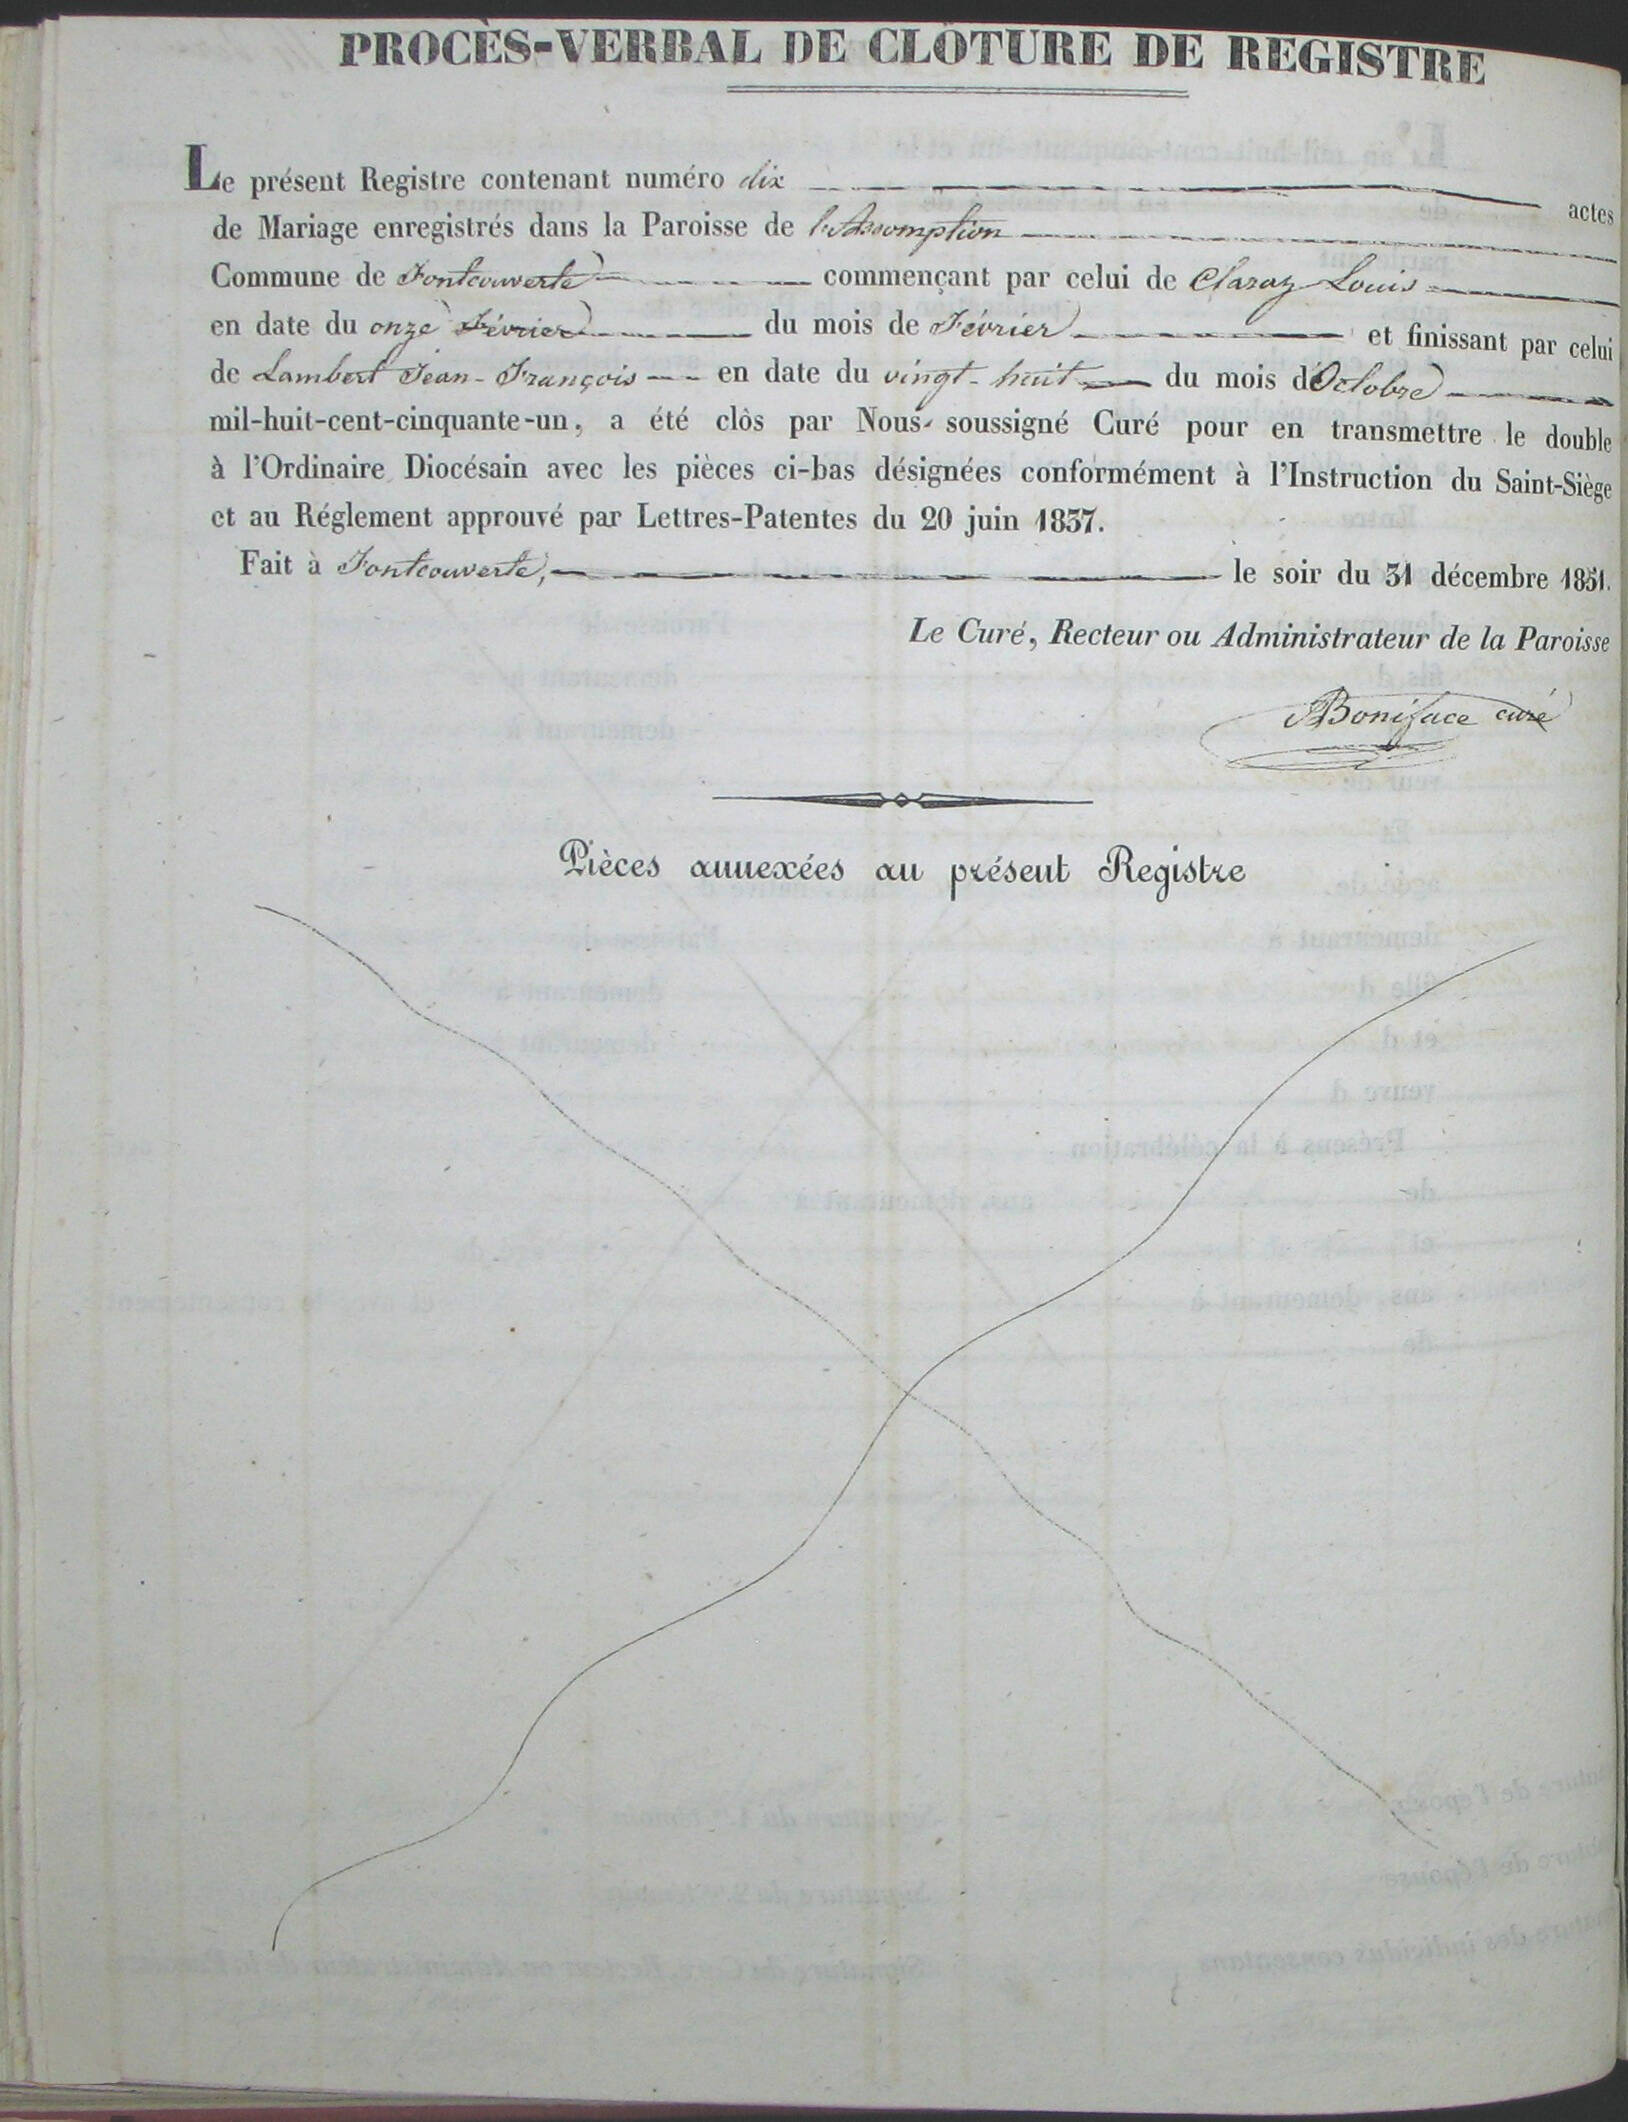 PROCÈS-VERBAL DE CLÔTURE DE REGISTRE
Le présent Registre contenant numéro dix actes
de Mariage enregistrés dans la Paroisse de l'Assomption
Commune de Fontcouverte commençant par celui de Claraz Louis
en date du onze Février du mois de Février et finissant par celui
de Lambert Jean-François en date du vingt-huit du mois d'Octobre
mil-huit-cent-cinquante-un, a été clòs par Nous soussigné Curé pour en transmettre le double
à l'Ordinaire Diocésain avec les pièces ci-bas désignées conformément à l'Instruction du Saint-Siège
et au Réglement approuvé par Lettres-Patentes du 20 juin 1837.
Fait à Fontcouverte, le soir du 31 décembre 1851.
Le Curé, Recteur ou Administrateur de la Paroisse
Boniface curé
Pièces annexées au présent Registre